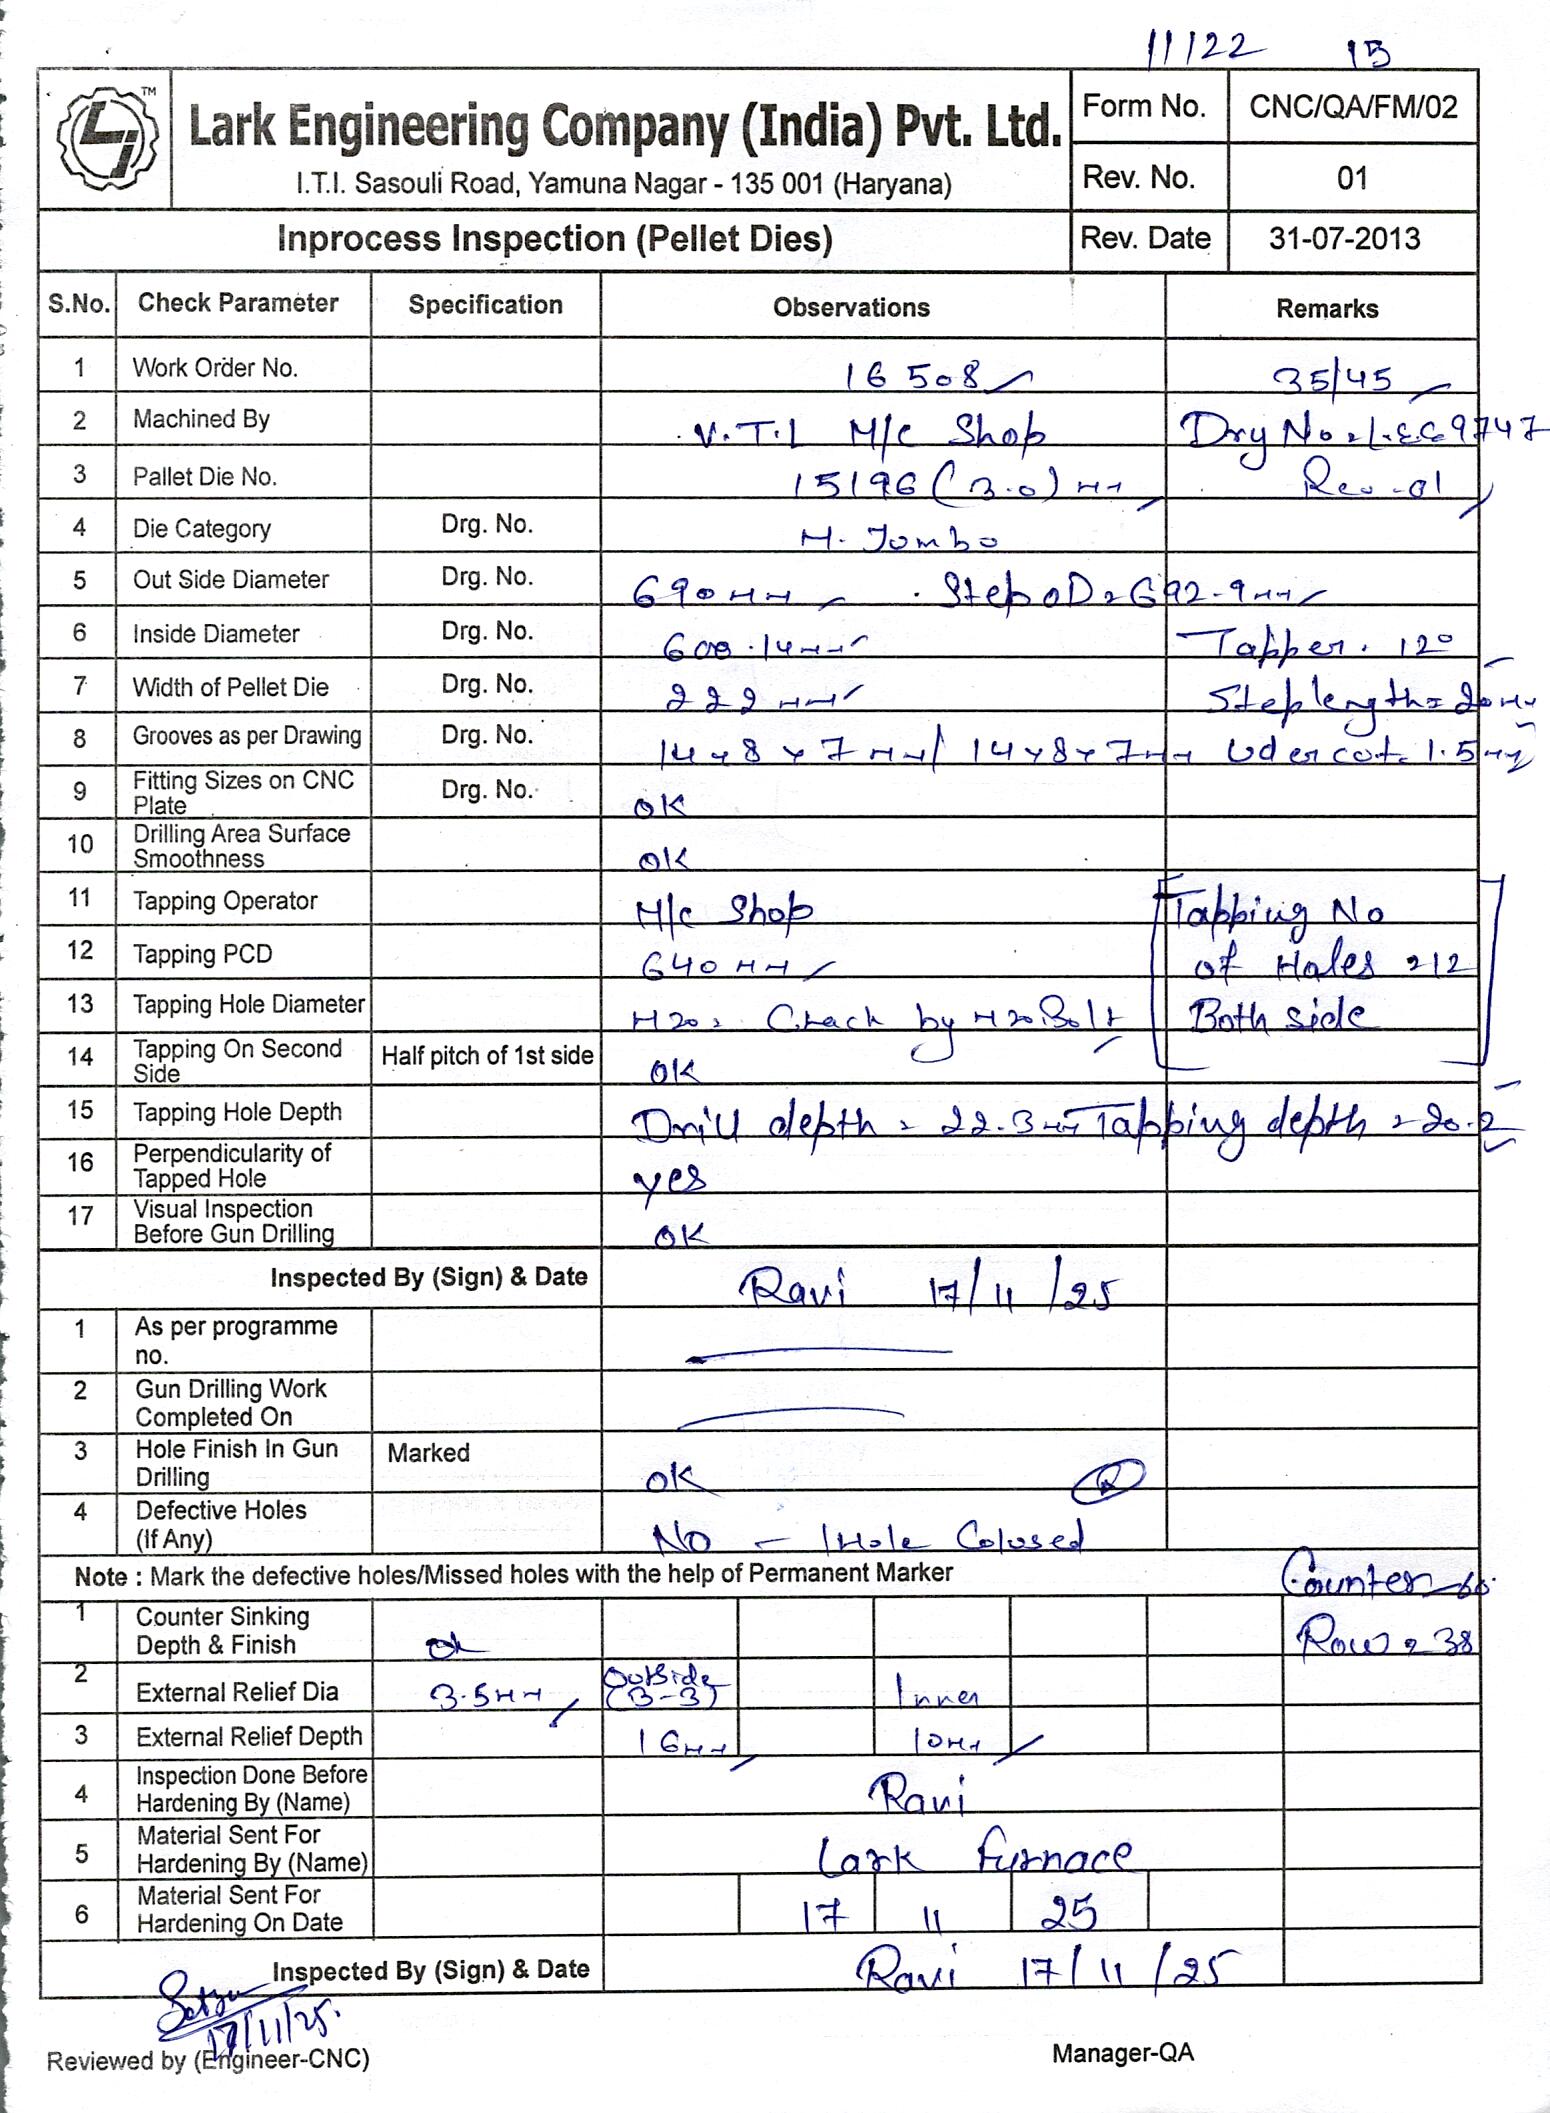 11122 13
TM
Lark Engineering Company (India) Pvt. Ltd.
I.T.I. Sasouli Road, Yamuna Nagar - 135 001 (Haryana)
Form No. CNC/QA/FM/02
Rev. No. 01
Inprocess Inspection (Pellet Dies) Rev. Date 31-07-2013
S.No. Check Parameter Specification Observations Remarks
1 Work Order No. 16508 35/45
2 Machined By V.T.L M/c Shop Drg No = L.E.C 9747
3 Pallet Die No. 15196 (3.0) MM Rev-01
4 Die Category Drg. No. M. Jumbo
5 Out Side Diameter Drg. No. 690 MM Step OD = 692.9 MM
6 Inside Diameter Drg. No. 600.14 MM Tapper. 12°
7 Width of Pellet Die Drg. No. 222 MM Step length = 20 MM
8 Grooves as per Drawing Drg. No. 14 x 8 x 7 MM / 14 x 8 x 7 MM Uder cut = 1.5 MM
9 Fitting Sizes on CNC Plate Drg. No. OK
10 Drilling Area Surface Smoothness OK
11 Tapping Operator M/c Shop Tapping No
12 Tapping PCD 640 MM of Holes = 12
13 Tapping Hole Diameter M20 = Chack by M20 Bolt Both side
14 Tapping On Second Side Half pitch of 1st side OK
15 Tapping Hole Depth Drill depth = 22.3 MM Tapping depth = 20.2
16 Perpendicularity of Tapped Hole yes
17 Visual Inspection Before Gun Drilling OK
Inspected By (Sign) & Date Ravi 17/11/25
1 As per programme no.
2 Gun Drilling Work Completed On
3 Hole Finish In Gun Drilling Marked OK
4 Defective Holes (If Any) No - 1 Hole Colused
Note : Mark the defective holes/Missed holes with the help of Permanent Marker Counter = 60°
1 Counter Sinking Depth & Finish Ok Row = 38
2 External Relief Dia 3.5 MM Outside (3-3) Inner
3 External Relief Depth 16 MM 10 MM
4 Inspection Done Before Hardening By (Name) Ravi
5 Material Sent For Hardening By (Name) Lark Furnace
6 Material Sent For Hardening On Date 17 11 25
Inspected By (Sign) & Date Ravi 17/11/25
17/11/25.
Reviewed by (Engineer-CNC) Manager-QA